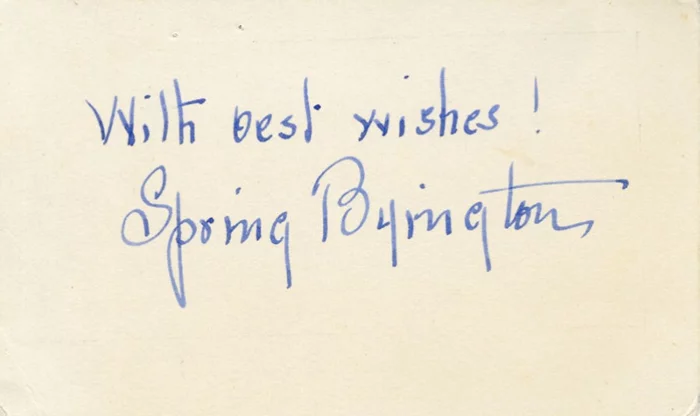 With best wishes!
Spring Byington